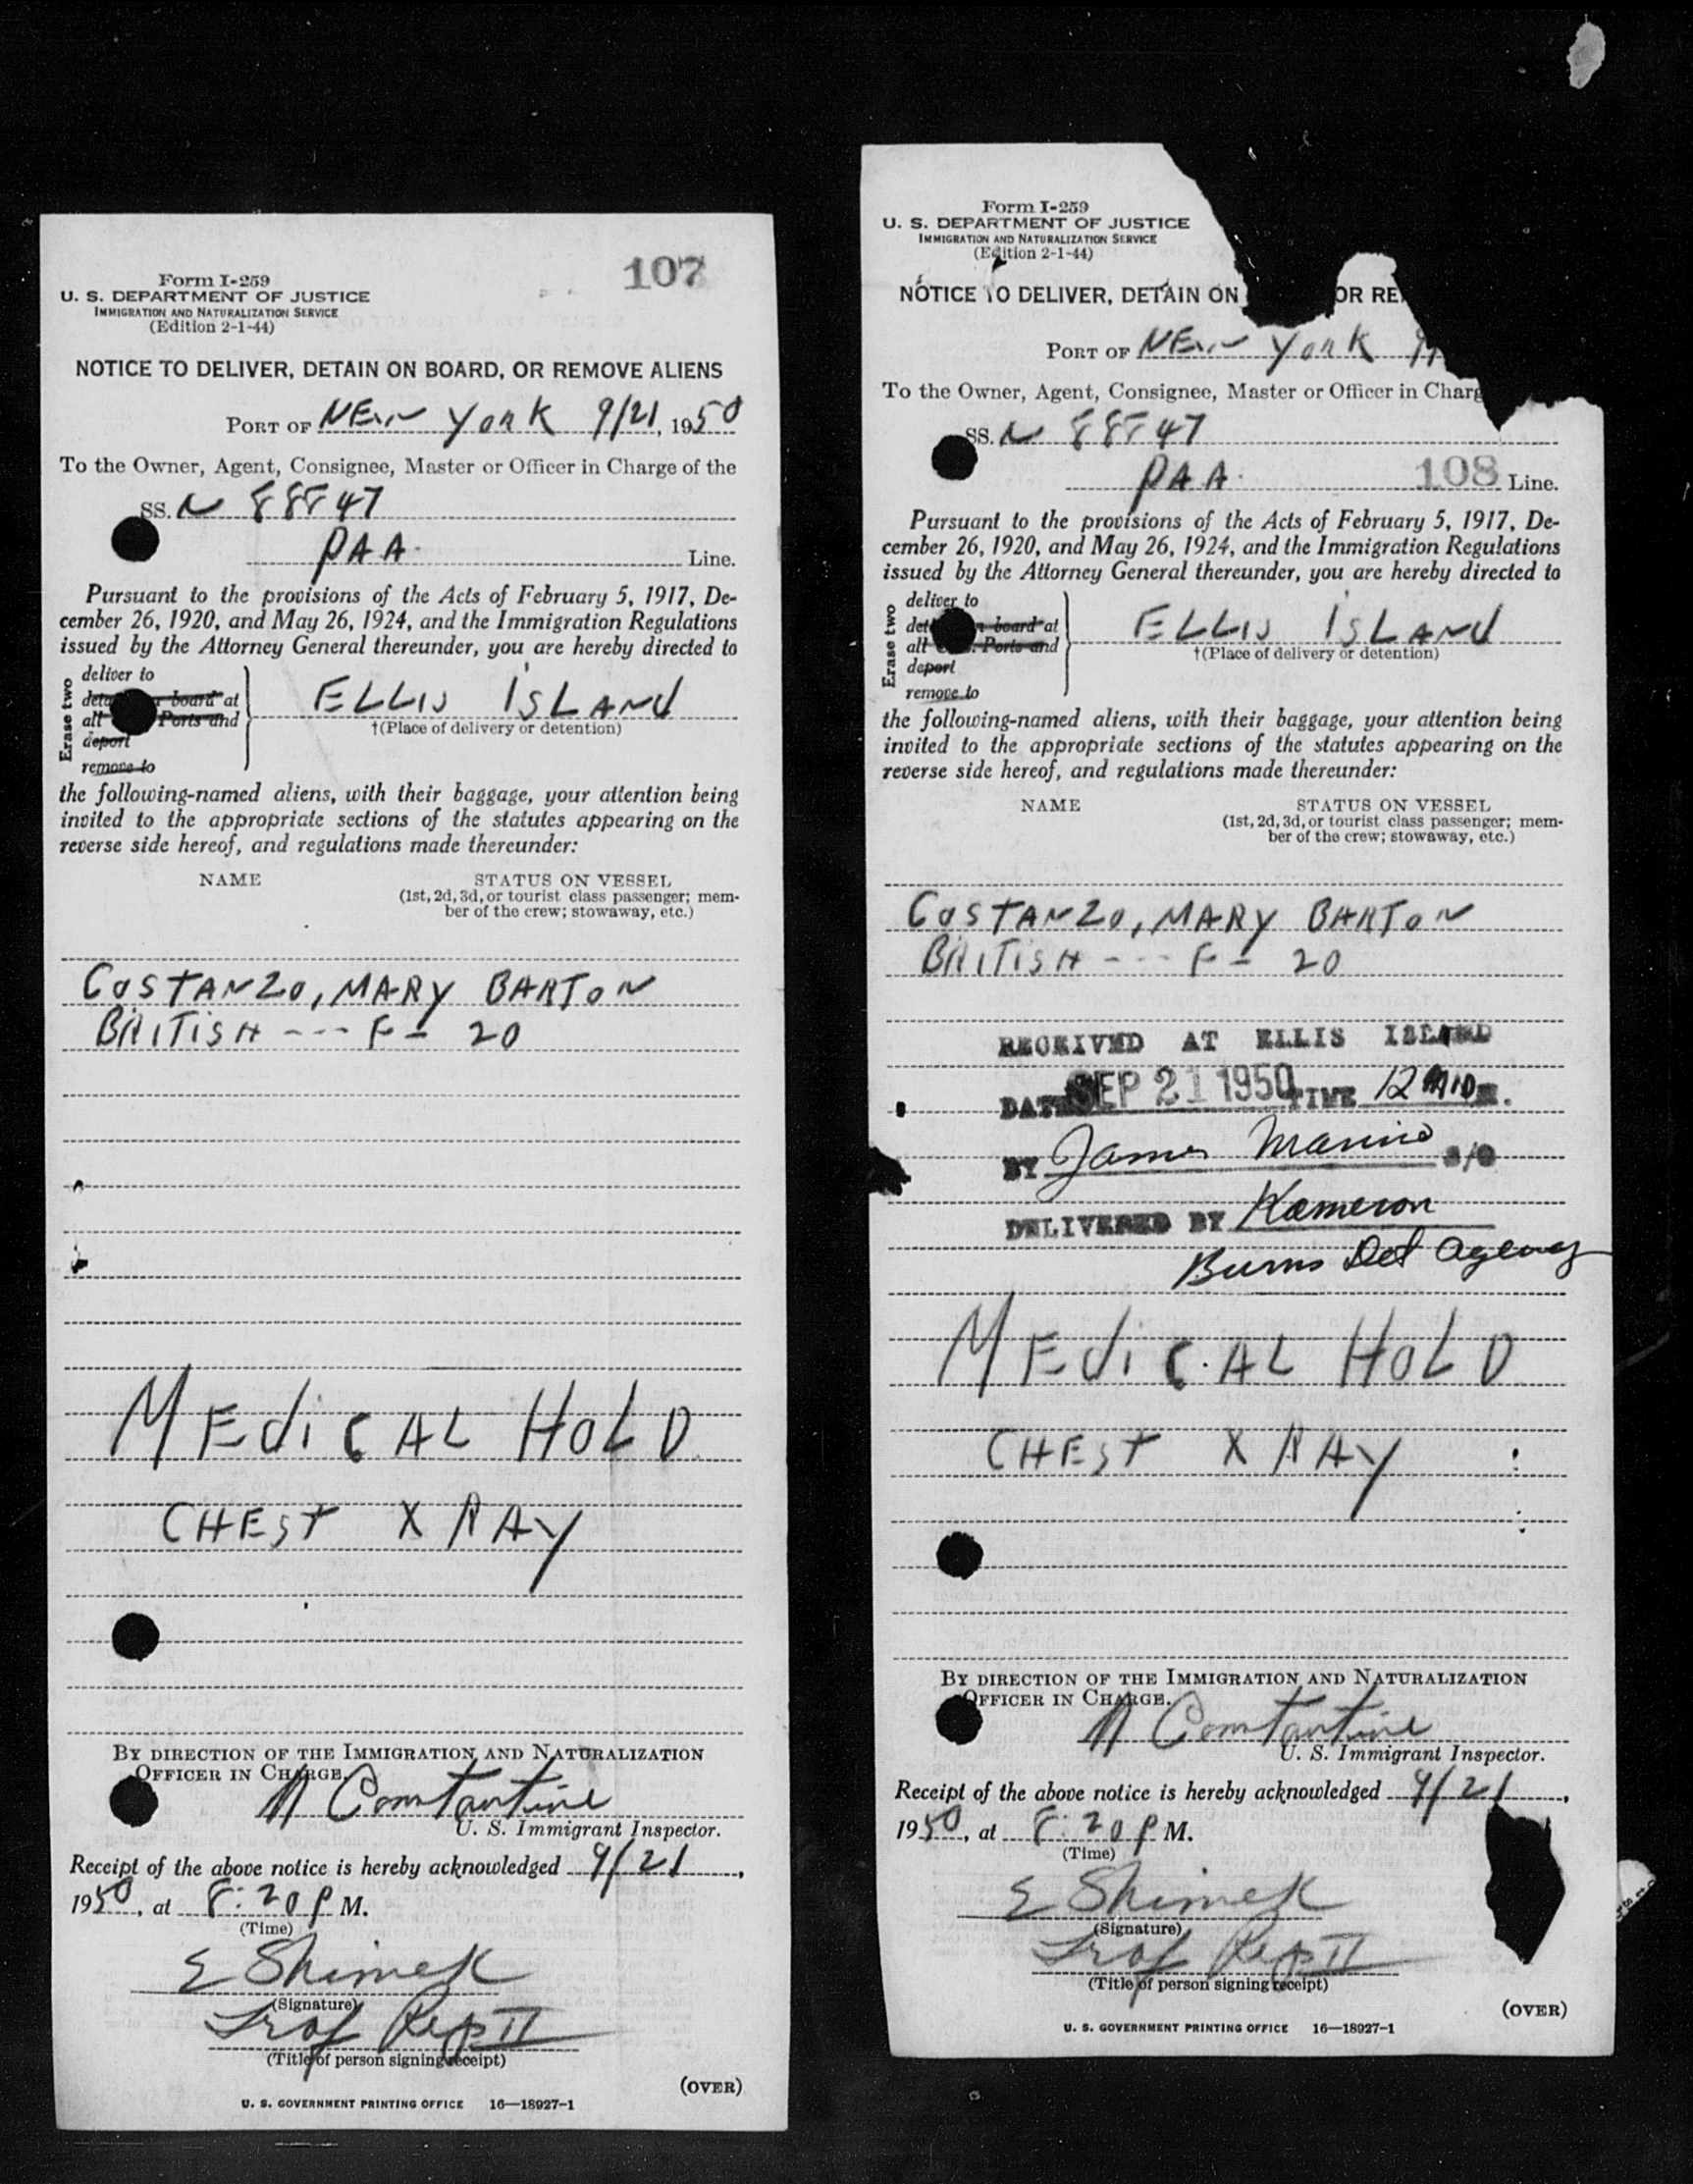 107
Form I-259
U. S. DEPARTMENT OF JUSTICE
IMMIGRATION AND NATURALIZATION SERVICE
(Edition 2-1-44)
NOTICE TO DELIVER, DETAIN ON BOARD, OR REMOVE ALIENS
PORT OF NEW YORK 9/21, 1950
To the Owner, Agent, Consignee, Master or Officer in Charge of the
SS. N 88847
PAA Line.
Pursuant to the provisions of the Acts of February 5, 1917, De-
cember 26, 1920, and May 26, 1924, and the Immigration Regulations
issued by the Attorney General thereunder, you are hereby directed to
Erase two
deliver to
board at
all Ports and
deport
remove to
ELLIS ISLAND
†(Place of delivery or detention)
the following-named aliens, with their baggage, your attention being
invited to the appropriate sections of the statutes appearing on the
reverse side hereof, and regulations made thereunder:
NAME STATUS ON VESSEL
(1st, 2d, 3d, or tourist class passenger; mem-
ber of the crew; stowaway, etc.)
COSTANZO, MARY BARTON
BRITISH --- F - 20
MEDICAL HOLD
CHEST X RAY
BY DIRECTION OF THE IMMIGRATION AND NATURALIZATION
OFFICER IN CHARGE.
N Constantine
U. S. Immigrant Inspector.
Receipt of the above notice is hereby acknowledged 9/21,
1950, at 8:20 P M.
(Time)
E Shimek
(Signature)
Rep II
(Title of person signing receipt)
(OVER)
U. S. GOVERNMENT PRINTING OFFICE 16—18927-1
Form I-259
U. S. DEPARTMENT OF JUSTICE
IMMIGRATION AND NATURALIZATION SERVICE
(Edition 2-1-44)
NOTICE TO DELIVER, DETAIN ON OR RE
PORT OF NEW YORK
To the Owner, Agent, Consignee, Master or Officer in Charg
SS. N 88847
PAA 108 Line.
Pursuant to the provisions of the Acts of February 5, 1917, De-
cember 26, 1920, and May 26, 1924, and the Immigration Regulations
issued by the Attorney General thereunder, you are hereby directed to
Erase two
deliver to
board at
all Ports and
deport
remove to
ELLIS ISLAND
†(Place of delivery or detention)
the following-named aliens, with their baggage, your attention being
invited to the appropriate sections of the statutes appearing on the
reverse side hereof, and regulations made thereunder:
NAME STATUS ON VESSEL
(1st, 2d, 3d, or tourist class passenger; mem-
ber of the crew; stowaway, etc.)
COSTANZO, MARY BARTON
BRITISH --- F - 20
RECEIVED AT ELLIS ISLAND
DATE SEP 21 1950 TIME 12 MID M.
BY James Marino
DELIVERED BY Kameron
Burns Det Agency
MEDICAL HOLD
CHEST X RAY
BY DIRECTION OF THE IMMIGRATION AND NATURALIZATION
OFFICER IN CHARGE.
N Constantine
U. S. Immigrant Inspector.
Receipt of the above notice is hereby acknowledged 9/21,
1950, at 8:20 P M.
(Time)
E Shimek
(Signature)
Rep II
(Title of person signing receipt)
(OVER)
U. S. GOVERNMENT PRINTING OFFICE 16—18927-1